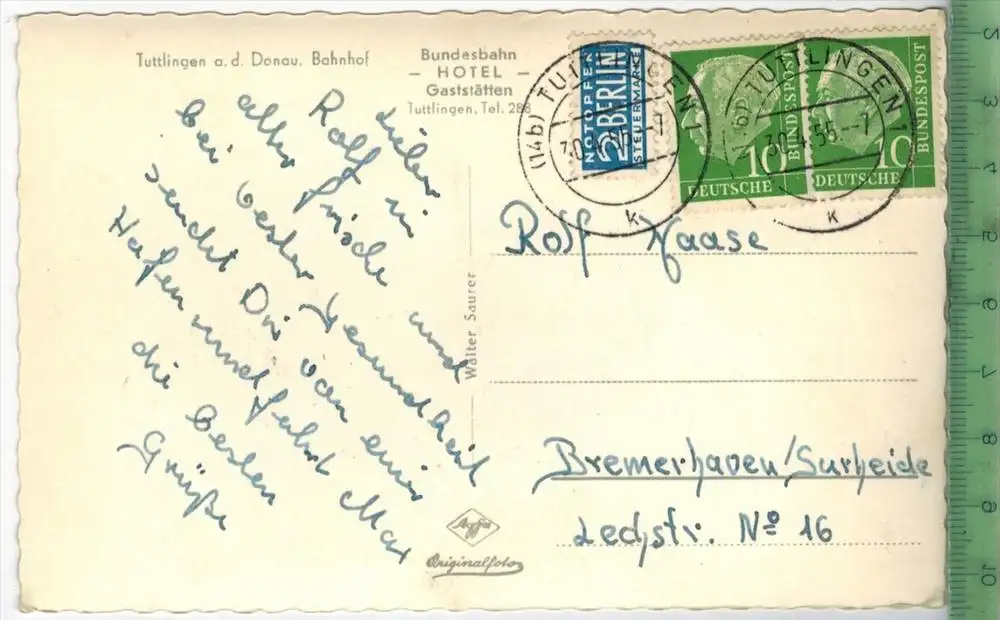 Tuttlingen a. d. Donau. Bahnhof
Bundesbahn
– HOTEL –
Gaststätten
Tuttlingen, Tel. 288
Lieber
Rolf in
alter Frische und
bei bester Gesundheit
sendet Dir von einer
Hafenrundfahrt Max
die besten
Grüße
Walter Saurer
Agfa
Originalfoto
NOTOPFER
2 BERLIN
STEUERMARKE
10
DEUTSCHE
BUNDESPOST
10
DEUTSCHE
BUNDESPOST
(14b) TUTTLINGEN 1
30.4.55.-7
k
TUTTLINGEN 1
30.4.55.-7
k
Rolf Naase
Bremerhaven/Surheide
Lechstr. Nº 16
2
3
4
5
6
7
8
9
10